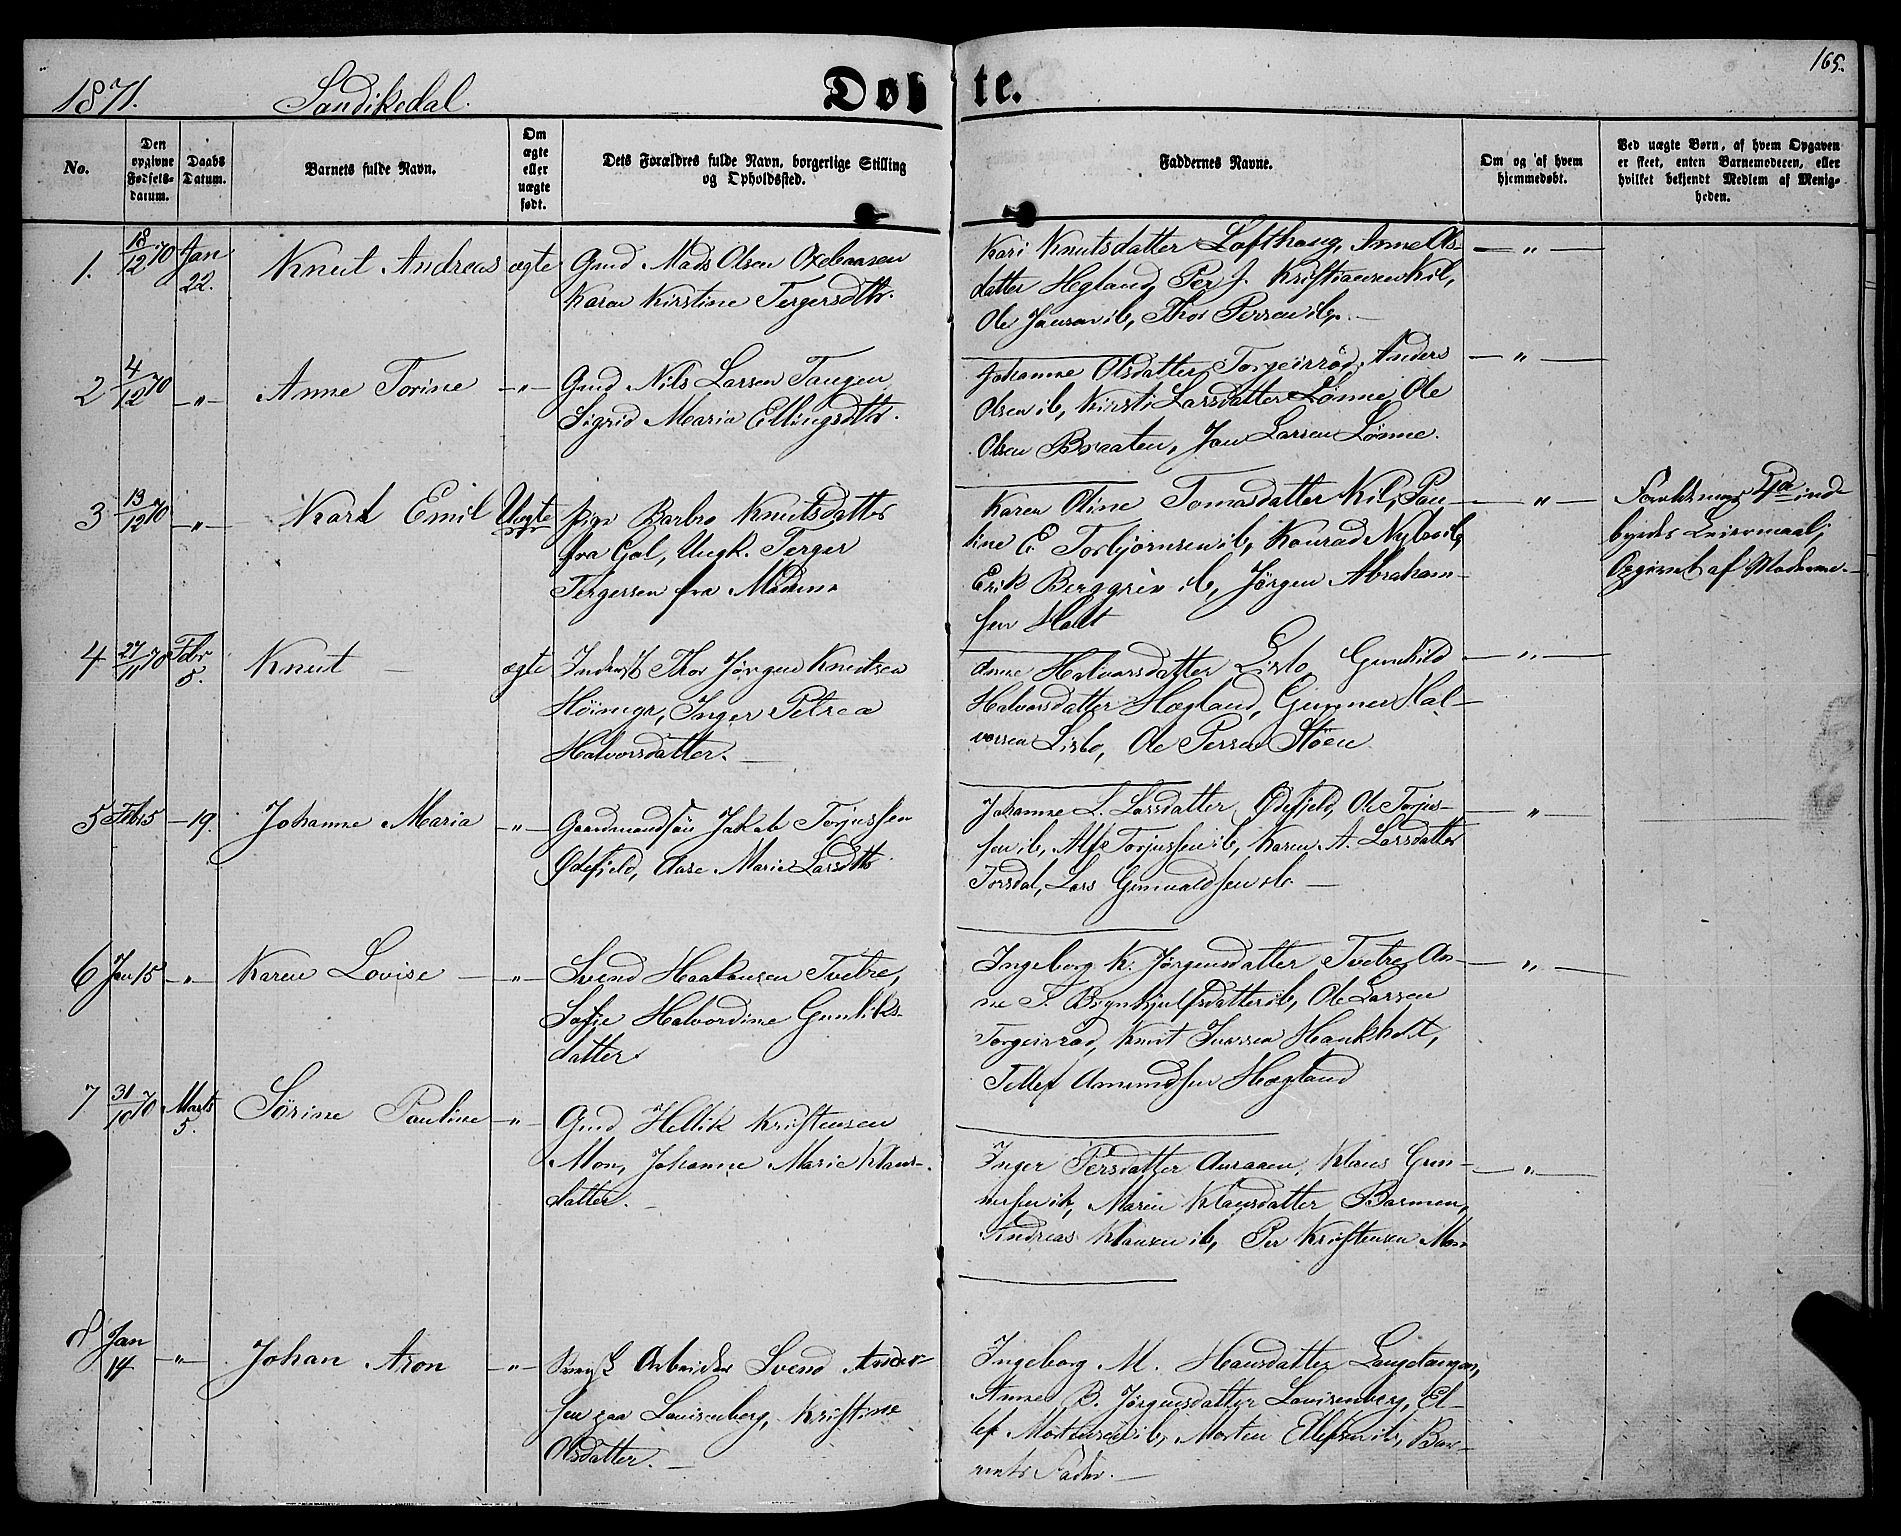 165.
1871. Sandikedal. Døbte.
No.
Den opgivne Fødselsdatum.
Daabs Datum.
Barnets fulde Navn.
Om ægte eller uægte født.
Dets Forældres fulde Navn, borgerlige Stilling og Opholdssted.
Faddernes Navne.
Om og af hvem hjemmedøbt.
Ved uægte Børn, af hvem Opgaven er skeet, enten Barnemoderen, eller hvilket bekjendt Medlem af Menigheden.
1. 18/12 70 Jan 22. Knut Andreas ægte
Gmd Mads Olsen
Karen Kirstine Tergersdtr.
Kari Knutsdatter Lofthaug, Anne Ols-
datter Hegland, Per J. Kristiansen Kil,
Ole Jansen ib, Thor Persen ib. —
— " —
2 4/12 70 — " — Anne Torine — " —
Gmd Nils Larsen Tangen
Sigrid Maria Ellingsdtr.
Johanne Olsdatter Torgeirrød, Anders
Olsen ib, Kirsti Larsdatter Lønne, Ole
Olsen Braaten, Jan Larsen Lønne.
— " —
3 13/12 70 — " — Karl Emil Uægte
Pige Barbro Knutsdatter
fra Gol, Ungk. Terger
Tergersen fra
Karen Oline Tomasdatter Kil, Pau-
line E. Torbjørnsen ib, Konrad ib,
Erik Berggren ib, Jørgen Abraham-
sen Holt
— " —
Forældrenes
Leiermaal,
Opgivet af Moderen. —
4 27/11 70 Febr 5. Knut — ægte
Inderst Thor Jørgen Knutsen
Inger Petrea
Halvorsdatter. —
Anne Halvorsdatter Lisbo, Gunhild
Halvorsdatter Hægland, Gunner Hal-
vorsen Lisbo, Ole Persen Støen
— " —
5 Febr 5 — 19. Johanne Maria — " —
Gaardmandsøn Jakob Torjussen
Ødefjeld, Aase Marie Larsdtr
Johanne L. Larsdatter Ødefjeld, Ole Torjus-
sen ib, Alf Torjussen ib, Karen A. Larsdatter
Torsdal, Lars Gunvaldsen ib. —
— " —
6 Jan 15 — " — Karen Lovise — " —
Svend Haakonsen Tvetre,
Sofie Halvordine Gunliks-
datter
Ingeborg K. Jørgensdatter Tvetre, An-
ne T. Brynhjulfsdatter ib, Ole Larsen
Torgeirrød, Knut Ivarsen Haukholt,
Tellef Amundsen Hægland
— " —
7 31/10 70 Marts 5. Sørine Pauline — " —
Gmd Hellik Kristensen
Mon, Johanne Marie Klaus-
datter. —
Inger Persdatter Aaraaen, Klaus Gun-
nersen ib, Maren Klausdatter Barmen,
Andreas Klausen ib, Per Kristensen Mon
— " —
8 Jan 14 — " — Johan Aron — " —
Svensk Arbeider Svend Ander-
sen paa Louisenberg, Kristine
Olsdatter. —
Ingeborg M. Hansdatter Langetangen,
Anne B. Jørgensdatter Louisenberg, El-
lef Mortensen ib, Morten Ellefsen ib, Bar-
nets Fader. —